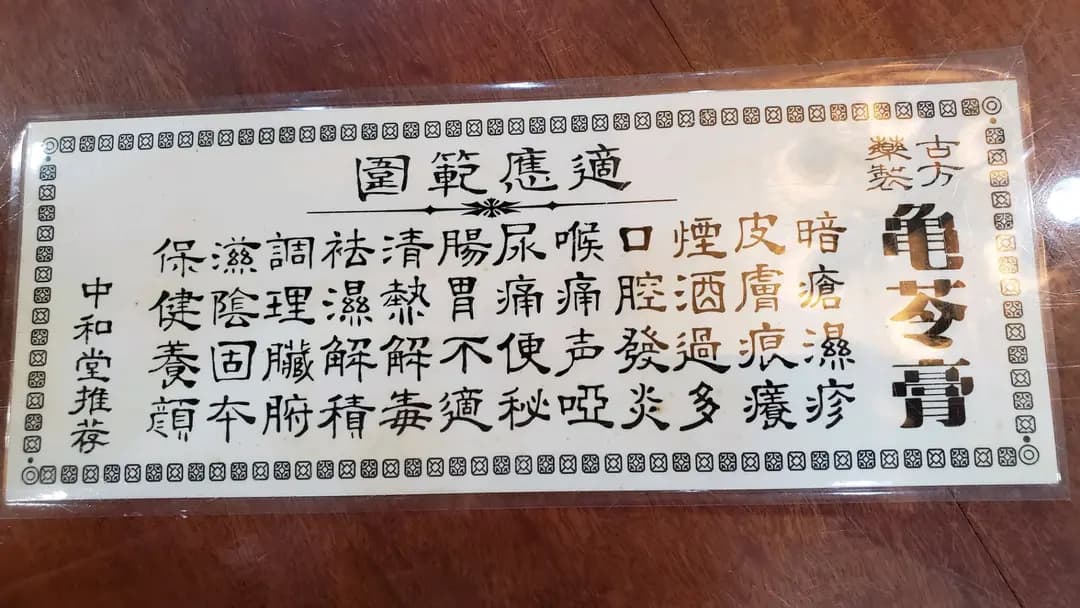 古方
藥製
亀苓膏
適應範圍
暗瘡濕疹
皮膚痕癢
煙酒過多
口腔發炎
喉痛声啞
尿痛便秘
腸胃不適
清熱解毒
祛濕解積
調理臟腑
滋陰固本
保健養顔
中和堂推荐